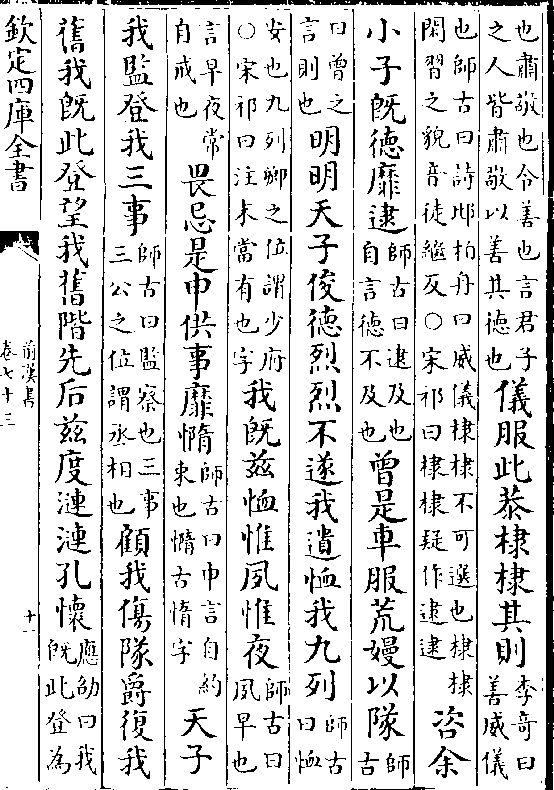 也肅敬也令善也言君子之人皆肅敬以善其德也儀服此恭棣棣其則李奇曰善威儀
也師古曰詩邶柏舟曰威儀棣棣不可選也棣棣閑習之貌音徒繼反○宋祁曰棣棣疑作逮逮咨余
小子既德靡逮師古曰逮及也自言德不及也曾是車服荒嫚以隊師古
曰曾之言則也明明天子俊德烈烈不遂我遺恤我九列師古曰恤
安也九列卿之位謂少府○宋祁曰注末當有也字我既茲恤惟夙惟夜師古曰夙早也
言早夜常自戒也畏忌是申供事靡憜師古曰申言自約束也憜古惰字天子
我監登我三事師古曰監察也三事三公之位謂丞相也顧我傷隊爵復我
舊我既此登望我舊階先后茲度漣漣孔懷應劭曰我既此登為
欽定四庫全書
前漢書
卷七十三
十一